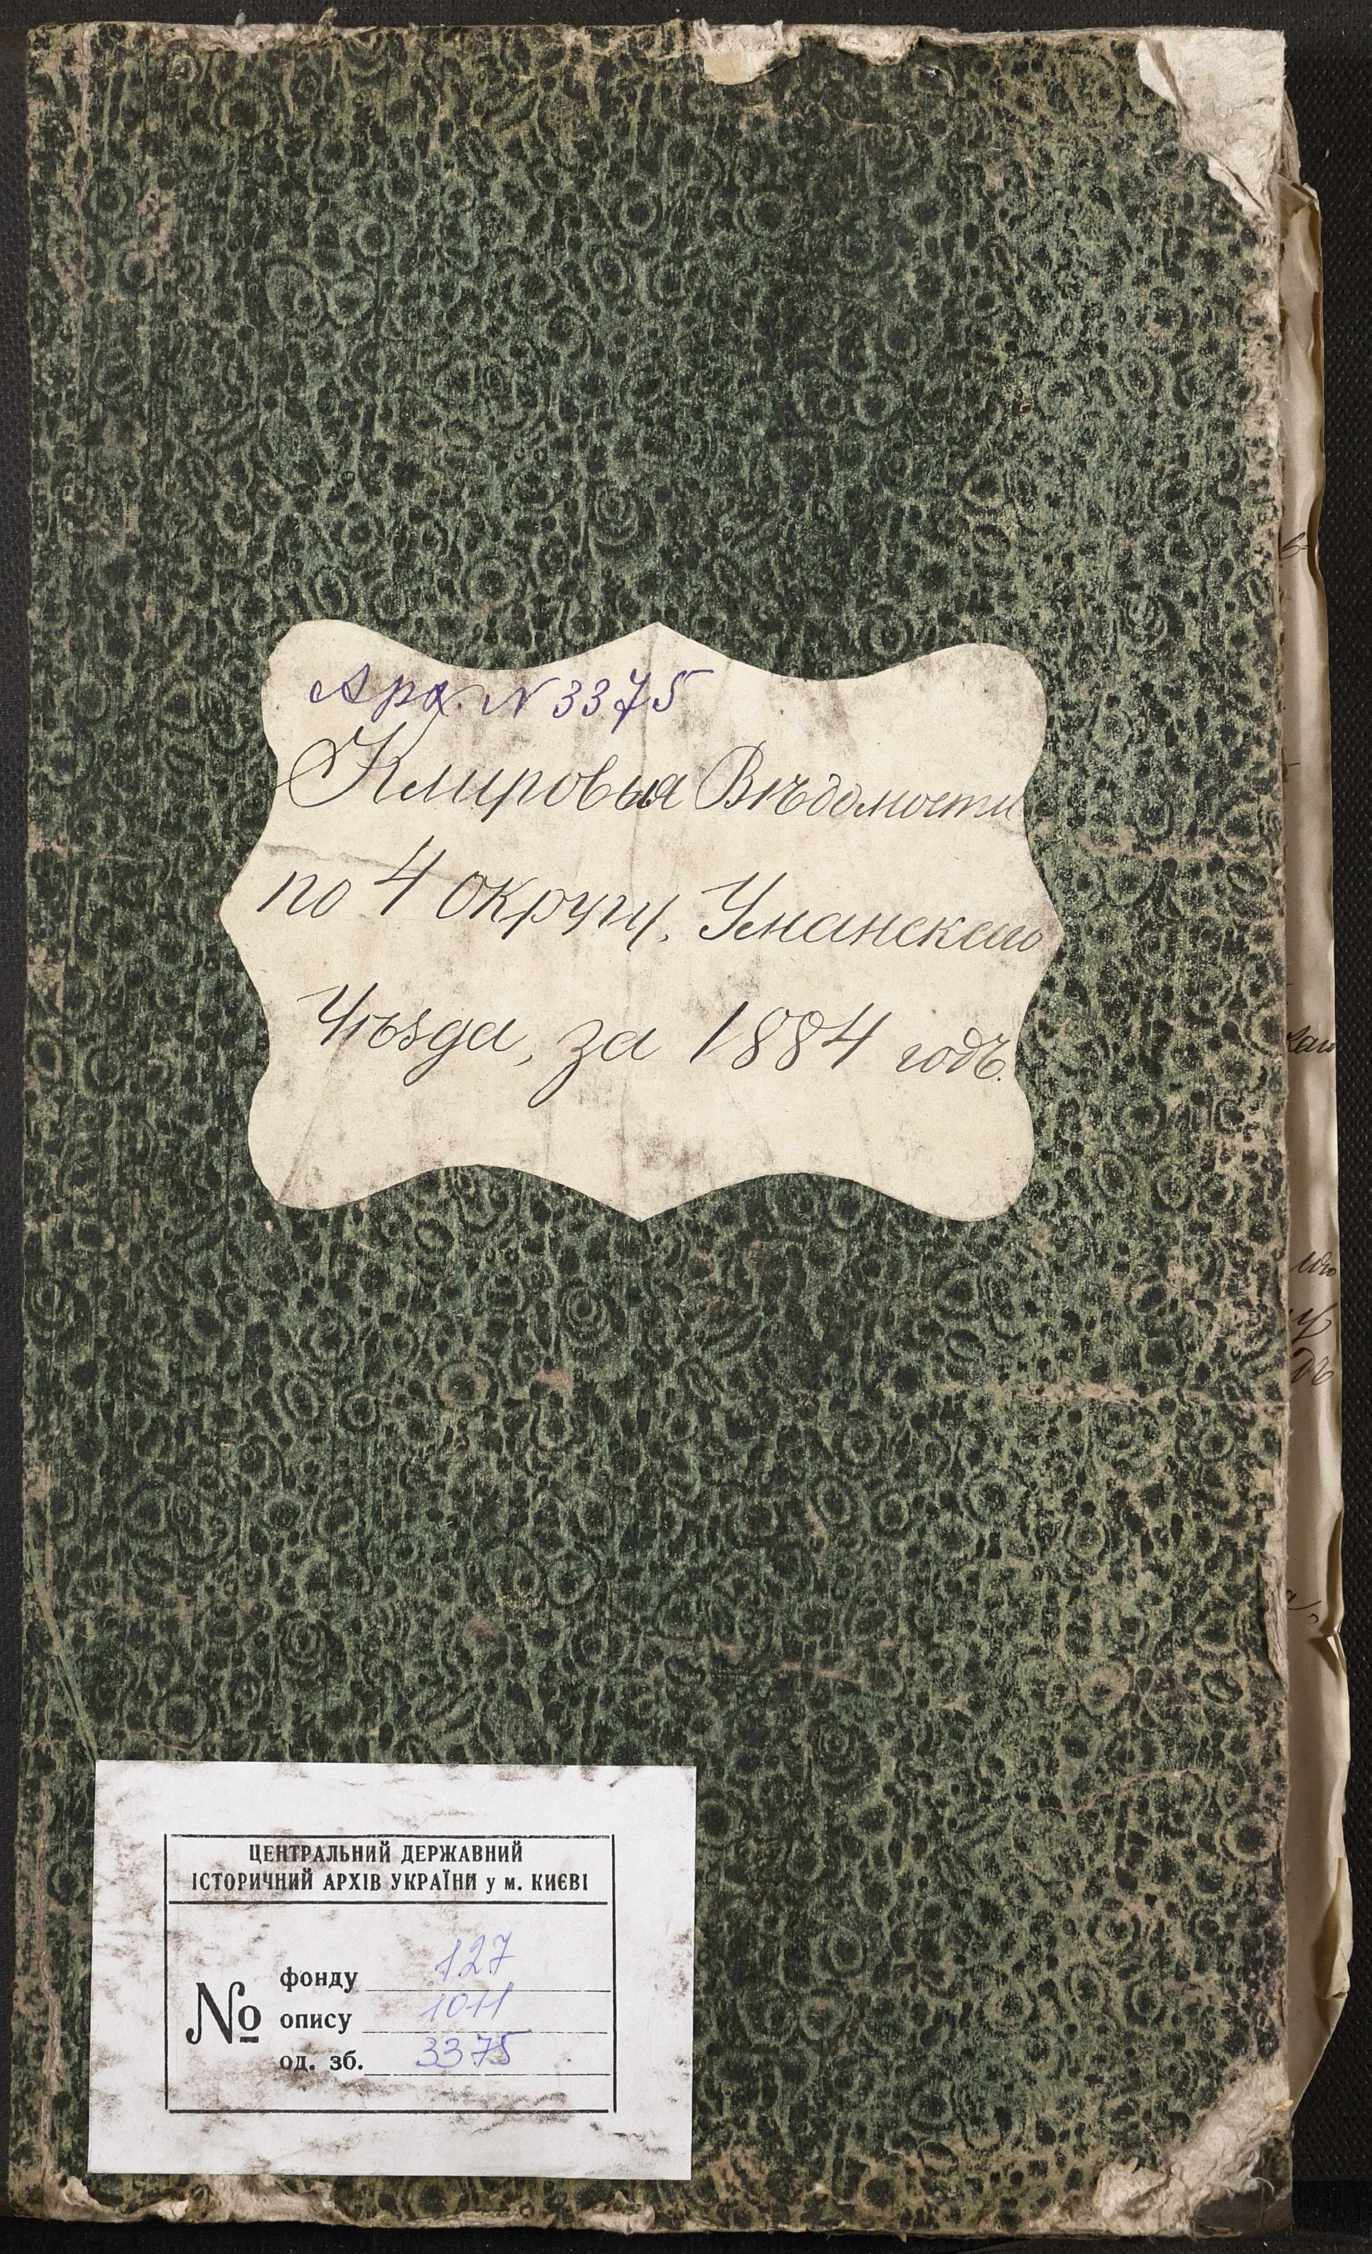 Арх. N 3375
Клировыя Вѣдомости
по 4 округу, Уманскаго
Уѣзда, за 1884 годъ.
ЦЕНТРАЛЬНИЙ ДЕРЖАВНИЙ
ІСТОРИЧНИЙ АРХІВ УКРАЇНИ у м. КИЄВІ
№
фонду 127
опису 1011
од. зб. 3375